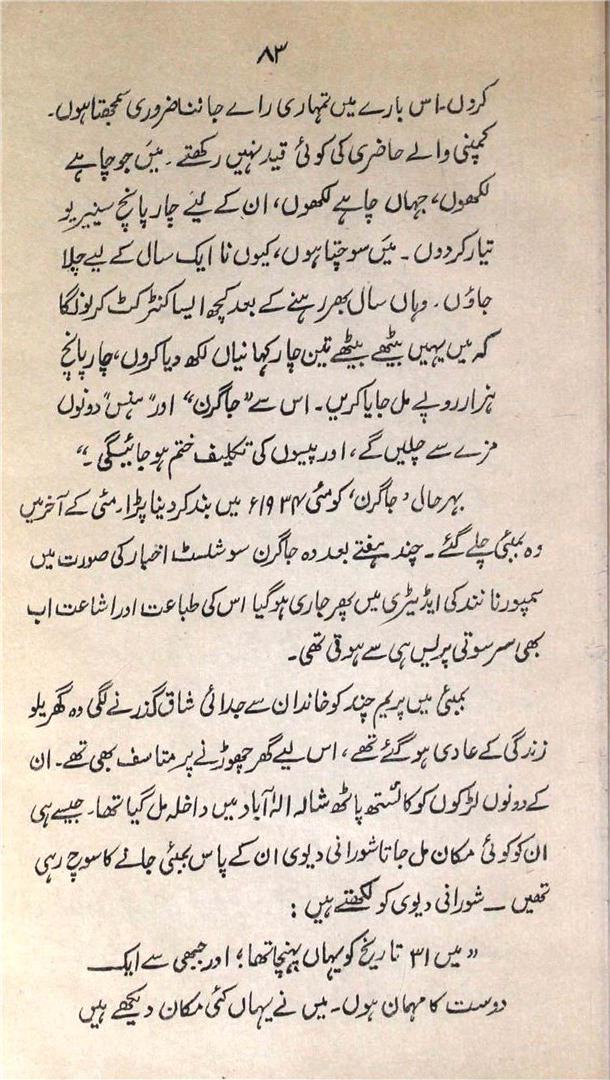 ۸۳
کروں۔اس بارے میں تمہاری رائے جاننا ضروری سمجھتا ہوں۔
کمپنی والے حاضری کی کوئی قید نہیں رکھتے ۔ میں جو چاہے
لکھوں، جہاں چاہے لکھوں، ان کے لئے چار پانچ سینیریو
تیار کردوں ۔ میں سوچتا ہوں، کیوں نا ایک سال کے لیے چلا
جاؤں ۔ وہاں سال بھر رہنے کے بعد کچھ ایسا کنٹرکٹ کرلونگا
کہ میں یہیں بیٹھے بیٹھے تین چار کہانیاں لکھ دیا کروں، چار پانچ
ہزار روپے مل جایا کریں ۔ اس سے ”جاگرن“ اور ”ہنس“ دونوں
مزے سے چلیں گے، اور پیسوں کی تکلیف ختم ہو جائیگی ۔“
بہر حال ’جاگرن‘ کو مئی ۱۹۳۴ء میں بند کر دینا پڑا۔ مئی کے آخر میں
وہ بمبئی چلے گئے ۔ چند ہفتے بعد وہ جاگرن سوشلسٹ اخبار کی صورت میں
سمپورنا نند کی ایڈیٹری میں پھر جاری ہو گیا اس کی طباعت اور اشاعت اب
بھی سرسوتی پریس ہی سے ہوتی تھی۔
بمبئی میں پریم چند کو خاندان سے جدائی شاق گذرنے لگی وہ گھریلو
زندگی کے عادی ہو گئے تھے، اس لیے گھر چھوڑنے پر متاسف بھی تھے۔ ان
کے دونوں لڑکوں کو کائستھ پاٹھ شالہ الہٰ آباد میں داخلہ مل گیا تھا۔ جیسے ہی
ان کو کوئی مکان مل جاتا شورانی دیوی ان کے پاس بمبئی جانے کا سوچ رہی
تھیں ــ شورانی دیوی کو لکھتے ہیں :
”میں ۳۱ تاریخ کو یہاں پہنچا تھا؛ اور جبھی سے ایک
دوست کا مہمان ہوں۔ میں نے یہاں کئی مکان دیکھے ہیں